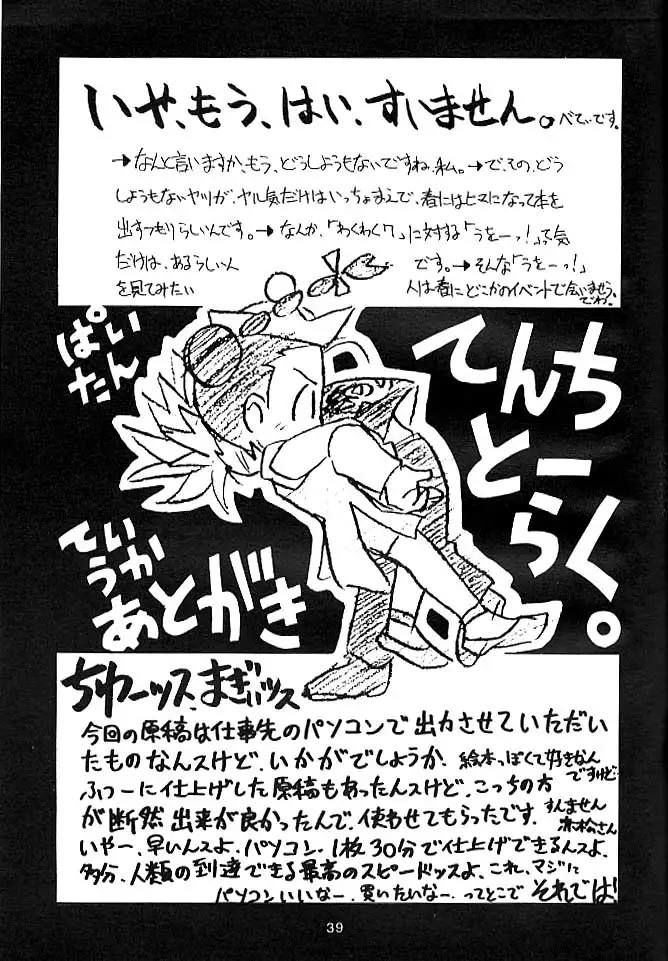 いや、もう、はい、すいません。べてぃです。
→なんと言いますか、もう、どうしようもないですね、私。→で、その、どう
しようもないヤツが、ヤル気だけはいっちょまえで、春にはヒマになって本を
出すつもりらしいんです。→なんか、「わくわく7」に対する「うをーっ!」って気
だけは、あるらしい人です。→そんな「うをーっ!」
を見てみたい人は春にどこかのイベントで会いませう。
でわ。
ぱいたん
てんち
とーらく。
ていうか
あとがき
ちゅーッス、まぎぃッス
今回の原稿は仕事先のパソコンで出力させていただい
たものなんスけど、いかがでしょうか、絵本っぽくて好きなん
ですけど…
ふつーに仕上げした原稿もあったんスけど、こっちの方
が断然出来が良かったんで、使わせてもらったです、すんません
赤松さん
いやー、早いんスよ、パソコン、1枚30分で仕上げできるんスよ、
多分、人類の到達できる最高のスピードッスよ、これ、マジに
パソコンいいなー、買いたいなー、ってとこでそれでは!
39